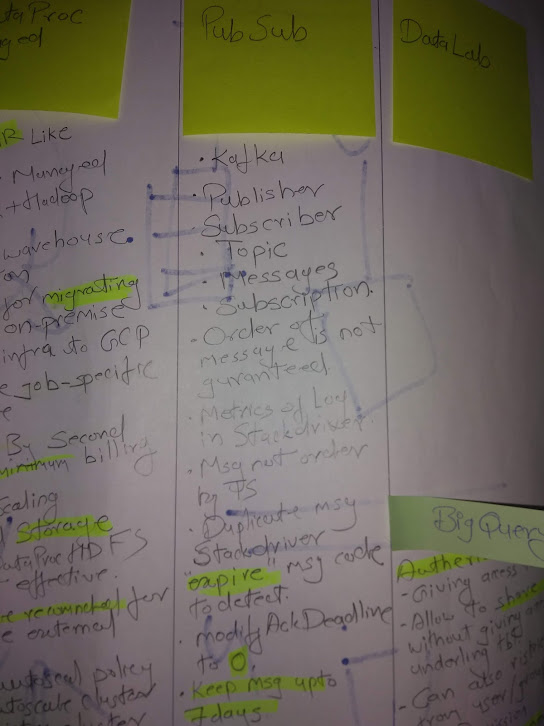 taProc
ged
R Like
Managed
+Hadoop
warehouse.
on
for migrating
on-premise
infra to GCP
e job-specific
e
By Second
minimum billing
Scaling
Storage
DataProc HDFS
effective.
for
e external
autoscal policy
autoscale cluster
cluster
PubSub
• Kafka
• Publisher
• Subscriber
• Topic
• Messages
• Subscription.
• Order of is not
message
guranteed.
• Metrics of Log
in Stackdriver.
• Msg not order
by TS
• Duplicate msg
Stackdriver
"expire" msg code
to detect.
• modifyAckDeadline
to 0.
• Keep msg upto
7days.
DataLab
BigQuery
Autheri
- Giving acess
- Allow to share
without giving
underling tb
- Can also